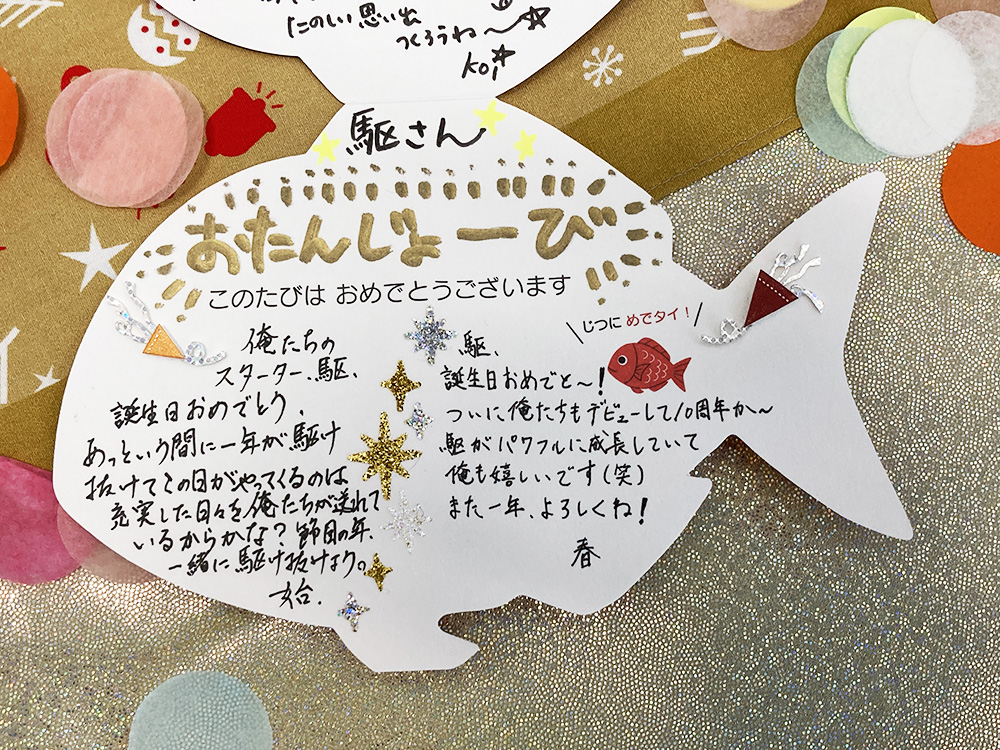 たのしい思い出
つくろうね〜☆
koi☆
駆さん
おたんじょーび
このたびは おめでとうございます
じつに めでタイ！
俺たちの
スターター、駆、
誕生日おめでとう、
あっという間に一年が駆け
抜けてこの日がやってくるのは
充実した日々を俺たちが送れて
いるからかな？節目の年、
一緒に駆け抜けよう。
始.
駆、
誕生日おめでと〜！
ついに俺たちもデビューして10周年か〜
駆がパワフルに成長していて
俺も嬉しいです(笑)
また一年、よろしくね！
春